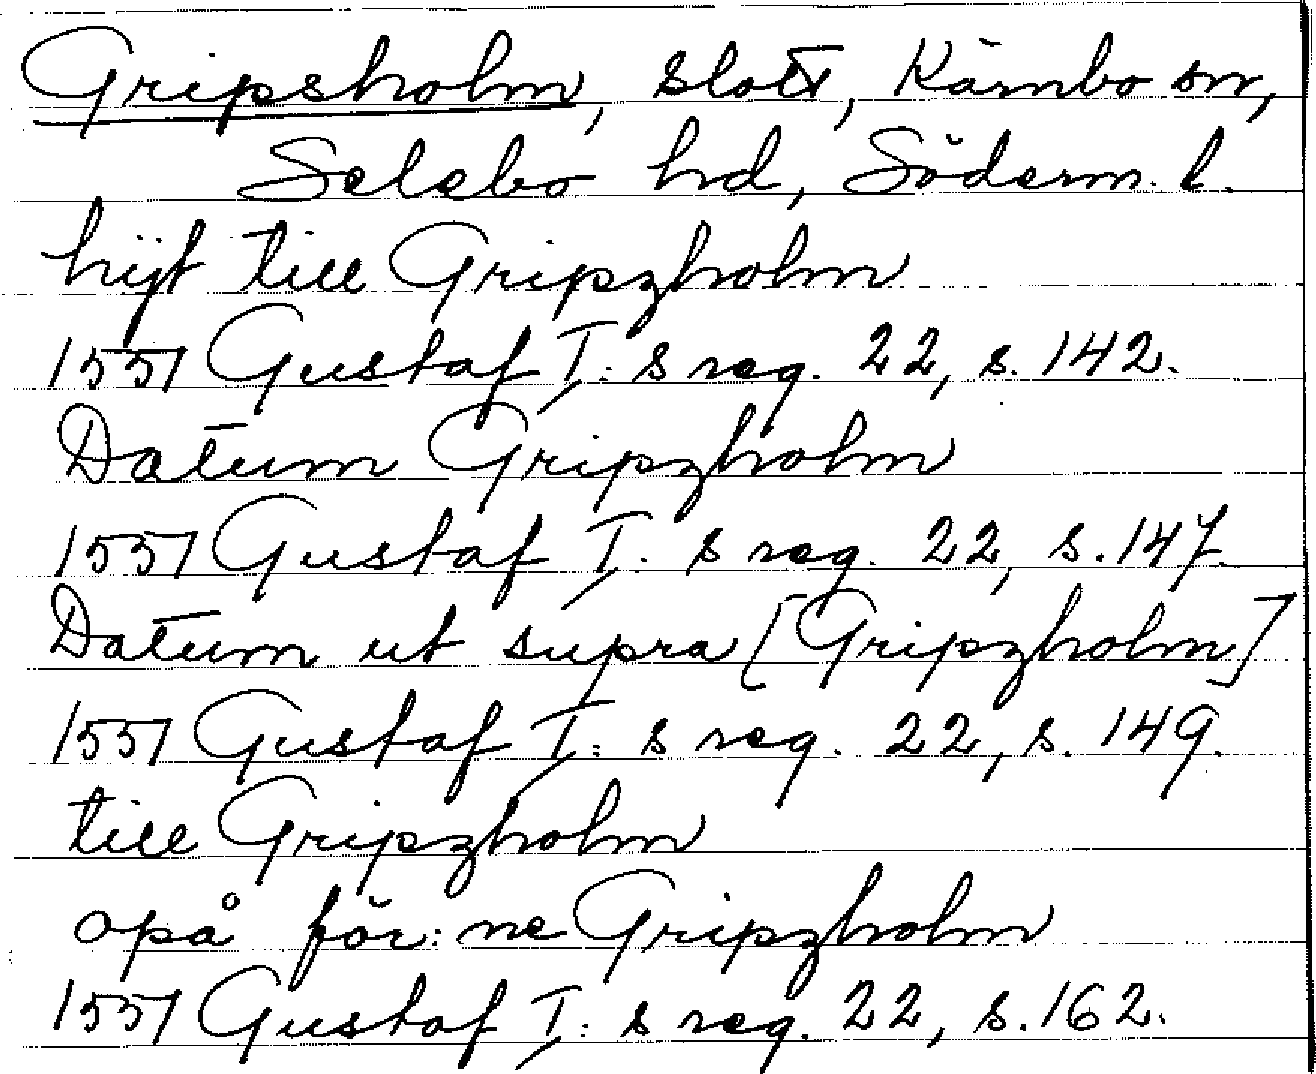 Gripsholm, slott, Kärnbo sn,
Selebo hd, Söderm. l.
hijt till Gripzholm
1551 Gustaf I: s reg. 22, s. 142.
Datum Gripzholm
1551 Gustaf I: s reg. 22, s. 147.
Datum ut supra [Gripzholm]
1551 Gustaf I: s reg. 22, s. 149.
till Gripzholm
opå för: ne Gripzholm
1551 Gustaf I: s reg. 22, s. 162.